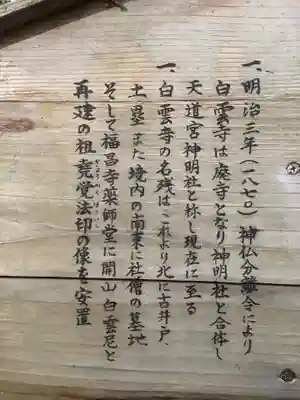 一、明治三年(一八七〇) 神仏分離令により
白雲寺は廃寺となり神明社と合体し
天道宮神明社と称し現在に至る
一、白雲寺の名残はこれより北に古井戸、
土塁また境内の南東に社僧の墓地
そして福昌寺薬師堂に開山白雲尼と
再建の祖堯覚法印の像を安置